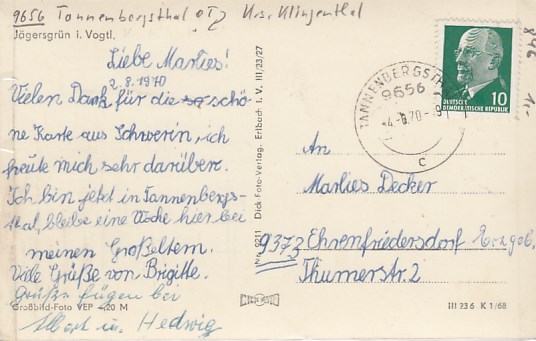 9656 Tannenbergsthal OTJ Krs. Klingenthal
Jägersgrün i. Vogtl.
Liebe Marlies!
2.8.1970
Vielen Dank für die so schö-
ne Karte aus Schwerin, ich
freute mich sehr darüber.
Ich bin jetzt in Tannenbergs-
thal, bleibe eine Woche hier bei
meinen Großeltern.
Viele Grüße von Brigitte.
Grüße fügen bei
Albert u. Hedwig
Großbild-Foto VEP -,20 M
Dick Foto-Verlag, Erlbach i. V. III/23/27
TANNENBERGSTH
9656
70
c
DEUTSCHE
DEMOKRATISCHE REPUBLIK
10
846
An
Marlies Decker
9373 Ehrenfriedersdorf Erzgeb.
Thumerstr. 2
III 23 6 K 1/68